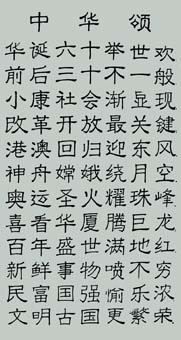 中华颂
华诞六十举世欢
前后三十不一般
小康社会渐显现
改革开放最关键
港澳回归迎东风
神舟嫦娥绕月空
奥运圣火耀珠峰
喜看华厦腾巨龙
百年盛世满地红
新鲜事物喷不穷
民富国强愉乐浓
文明古国更繁荣